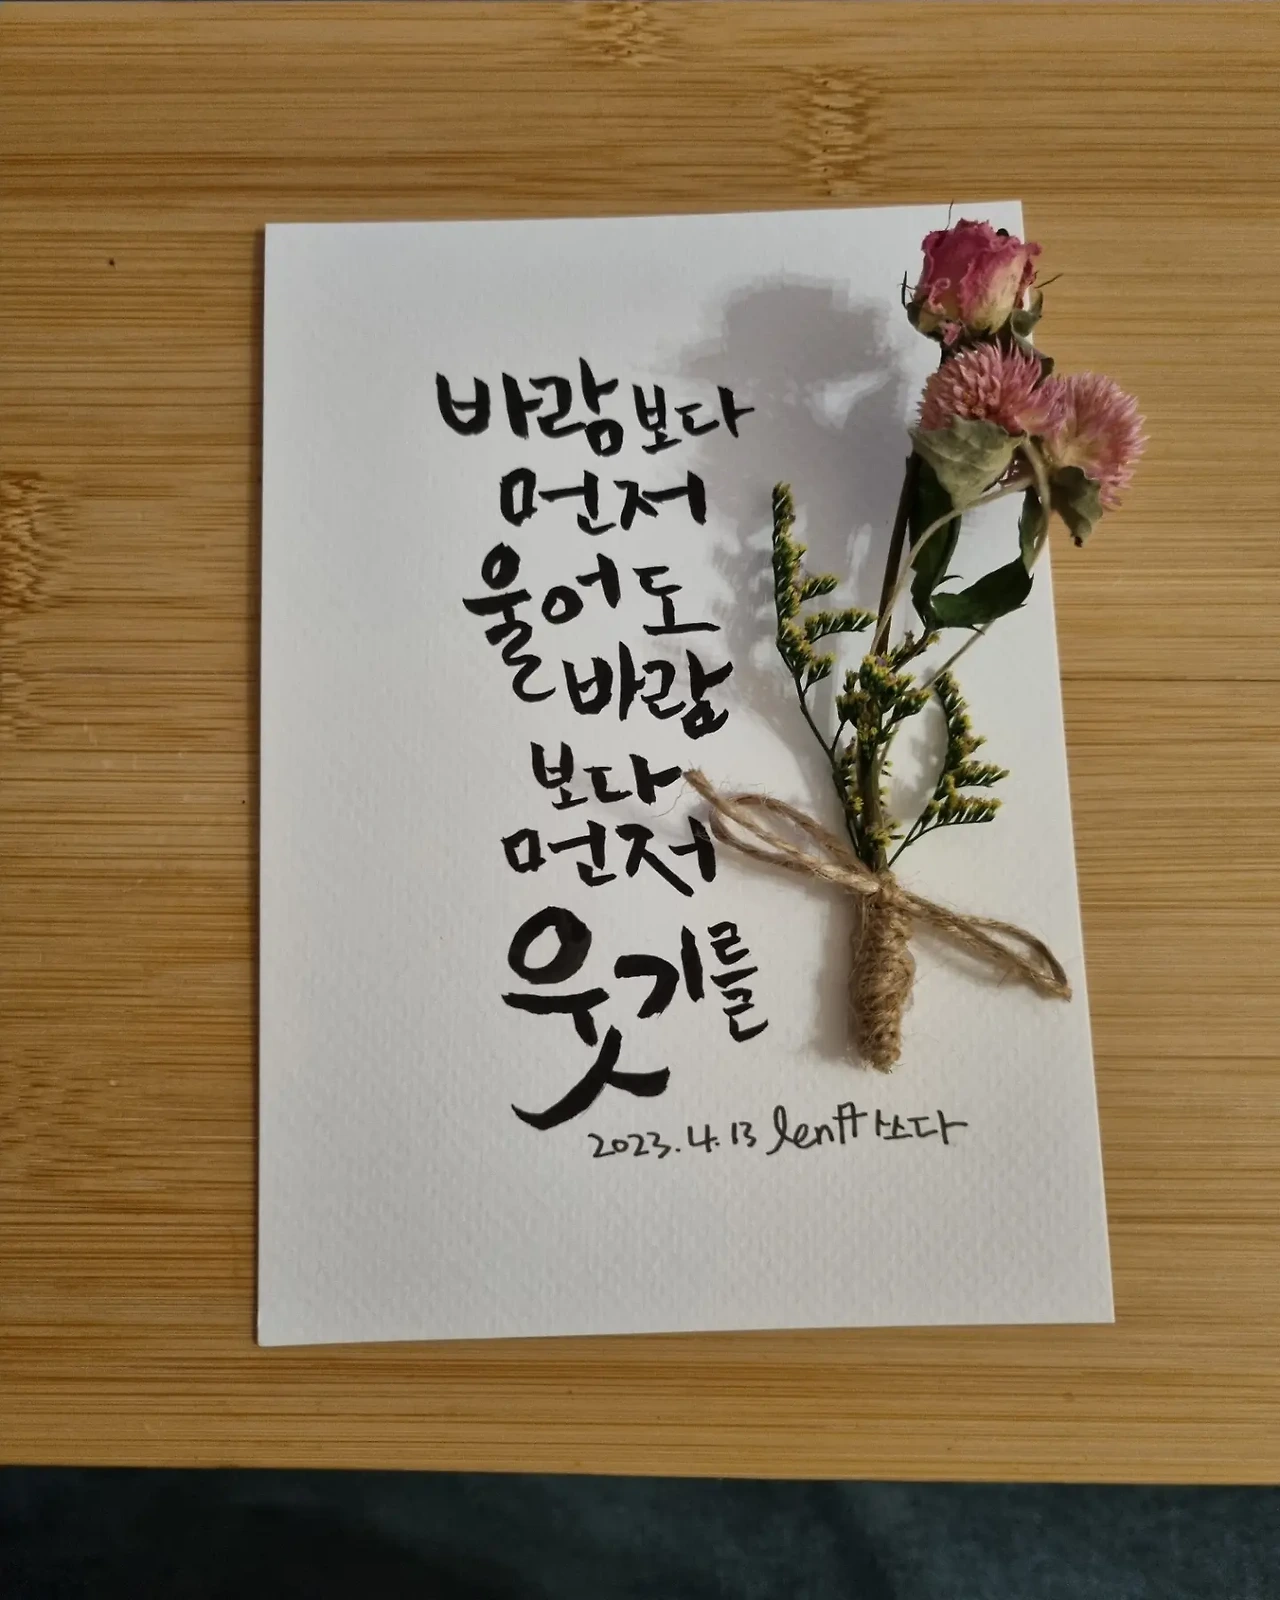 바람보다
먼저
울어도
바람
보다
먼저
웃기를
2023.4.13 쓰다